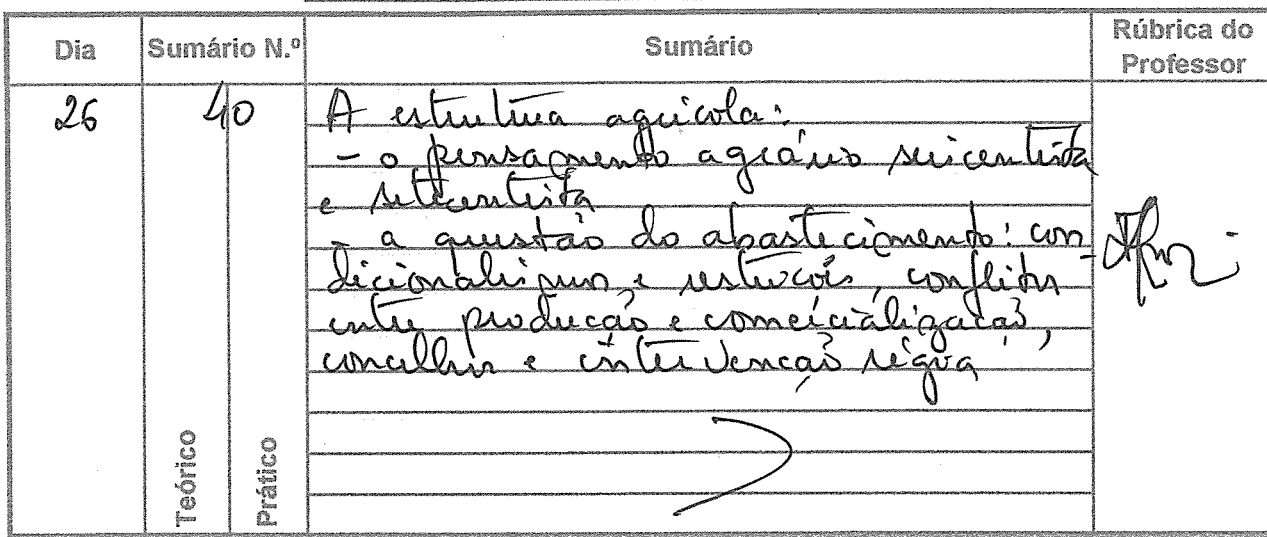 Dia Sumário N.º Sumário Rúbrica do Professor
26 40 A estrutura agrícola:
- o pensamento agrário seiscentista
e setecentista
- a questão do abastecimento: con-
dicionalismos e restrições, conflitos
entre produção e comercialização,
concelhos e intervenção régia
Teórico
Prático